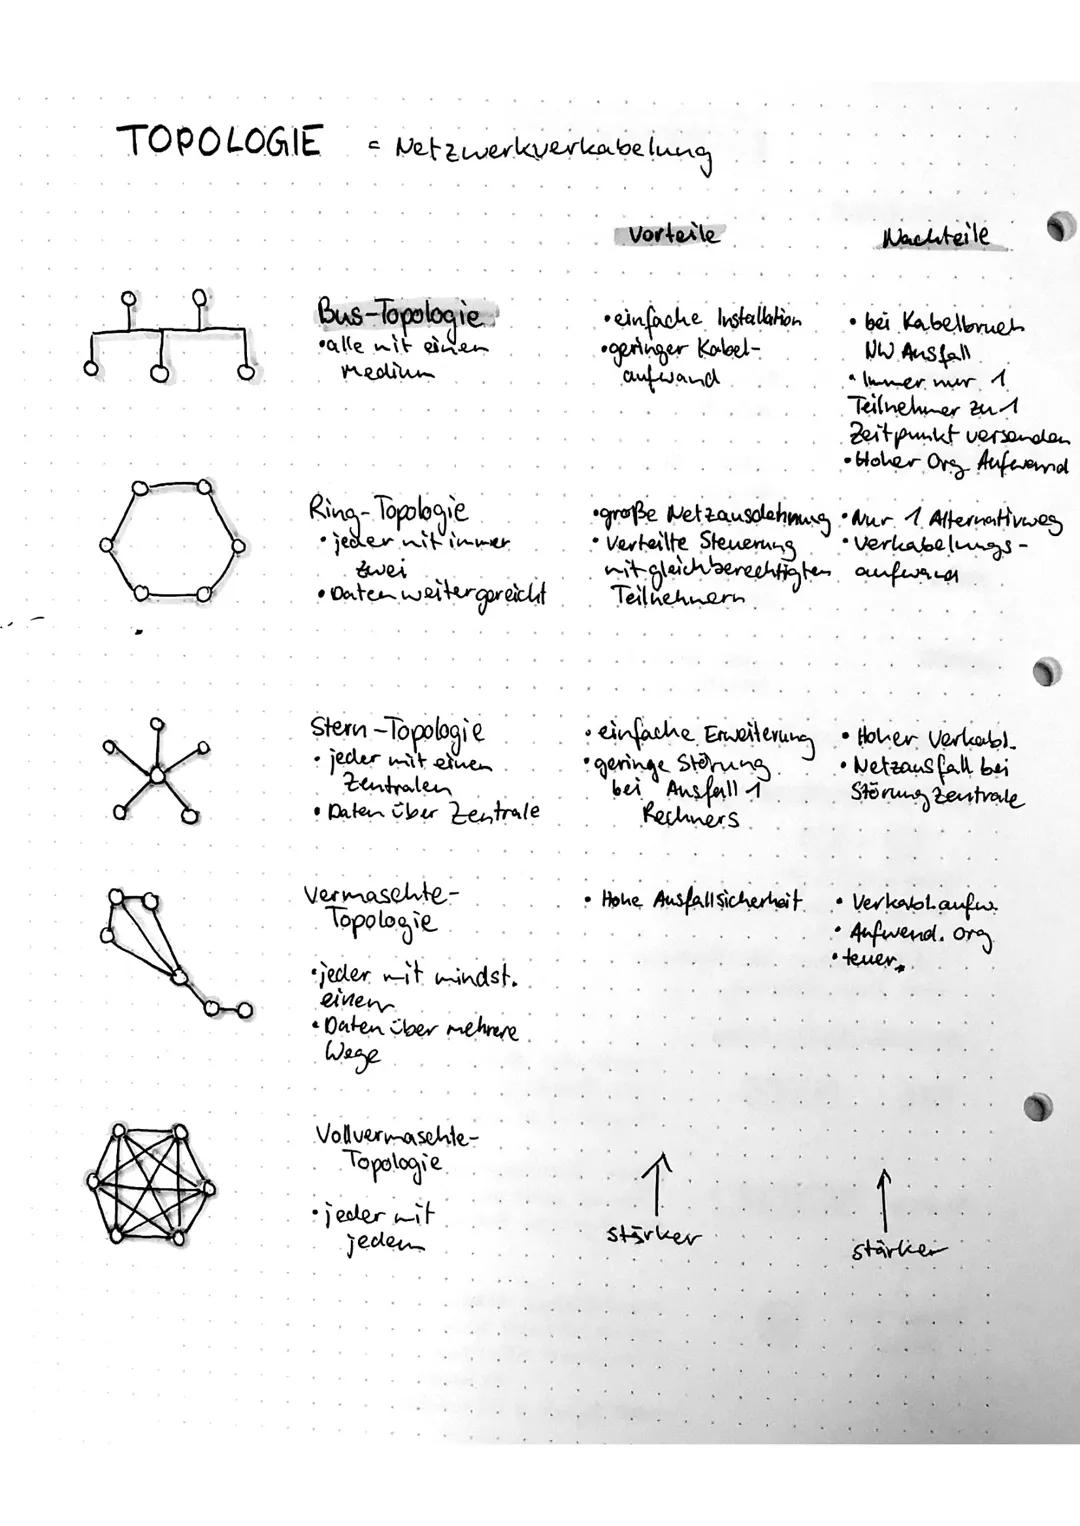 TOPOLOGIE = Netzwerkverkabelung
Vorteile
Nachteile
Bus-Topologie
• alle mit einem
Medium
• einfache Installation
• geringer Kabel-
aufwand
• bei Kabelbruch
NW Ausfall
• Immer nur 1
Teilnehmer zu 1
Zeitpunkt versenden
• Hoher Org Aufwand
Ring-Topologie
• jeder mit immer
zwei
• Daten weitergereicht
• große Netzausdehnung
• Verteilte Steuerung
mit gleichberechtigten
Teilnehmern
• Nur 1 Alternativweg
• Verkabelungs-
aufwand
Stern-Topologie
• jeder mit einen
Zentralen
• Daten über Zentrale
• einfache Erweiterung
• geringe Störung
bei Ausfall 1
Rechners
• Hoher Verkabl.
• Netzausfall bei
Störung Zentrale
Vermaschte-
Topologie
• jeder mit mindst.
einem
• Daten über mehrere
Wege
• Hohe Ausfallsicherheit
• Verkabl.aufw.
• Aufwend. Org
• teuer
Vollvermaschte-
Topologie
• jeder mit
jedem
↑
stärker
↑
stärker